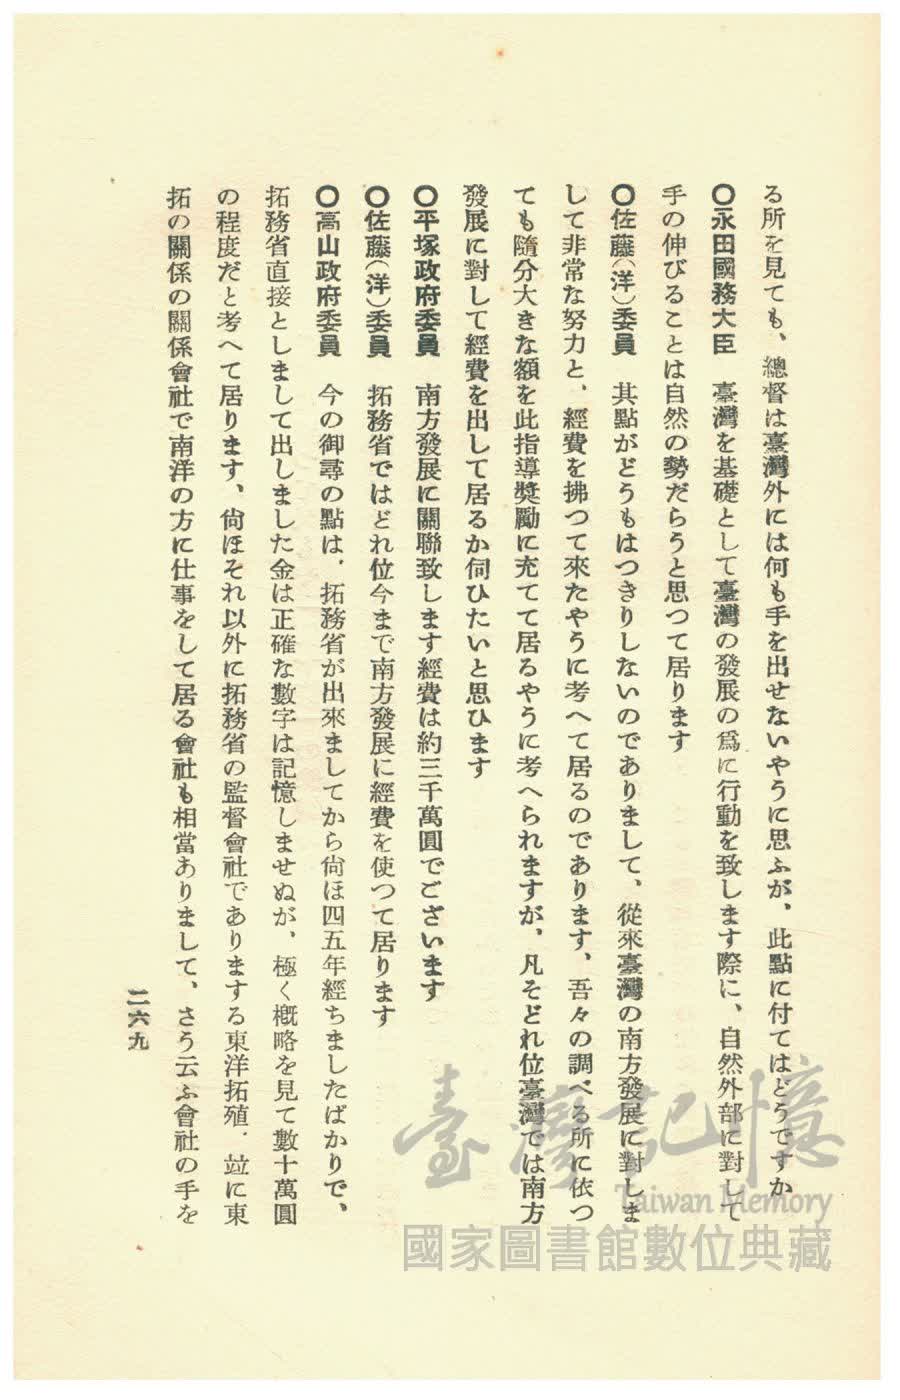 る所を見ても、總督は臺灣外には何も手を出せないやうに思ふが、此點に付てはどうですか
〇永田國務大臣　臺灣を基礎として臺灣の發展の爲に行動を致します際に、自然外部に對して
手の伸びることは自然の勢だらうと思つて居ります
〇佐藤(洋)委員　其點がどうもはつきりしないのでありまして、從來臺灣の南方發展に對しま
して非常な努力と、經費を拂つて來たやうに考へて居るのであります、吾々の調べる所に依つ
ても隨分大きな額を此指導奬勵に充てて居るやうに考へられますが、凡そどれ位臺灣では南方
發展に對して經費を出して居るか伺ひたいと思ひます
〇平塚政府委員　南方發展に關聯致します經費は約三千萬圓でございます
〇佐藤(洋)委員　拓務省ではどれ位今まで南方發展に經費を使つて居ります
〇高山政府委員　今の御尋の點は、拓務省が出來ましてから尙ほ四五年經ちましたばかりで、
拓務省直接としまして出しました金は正確な數字は記憶しませぬが、極く槪略を見て數十萬圓
の程度だと考へて居ります、尙ほそれ以外に拓務省の監督會社でありまする東洋拓殖、竝に東
拓の關係の關係會社で南洋の方に仕事をして居る會社も相當ありまして、さう云ふ會社の手を
二六九
臺灣記憶
Taiwan Memory
國家圖書館數位典藏